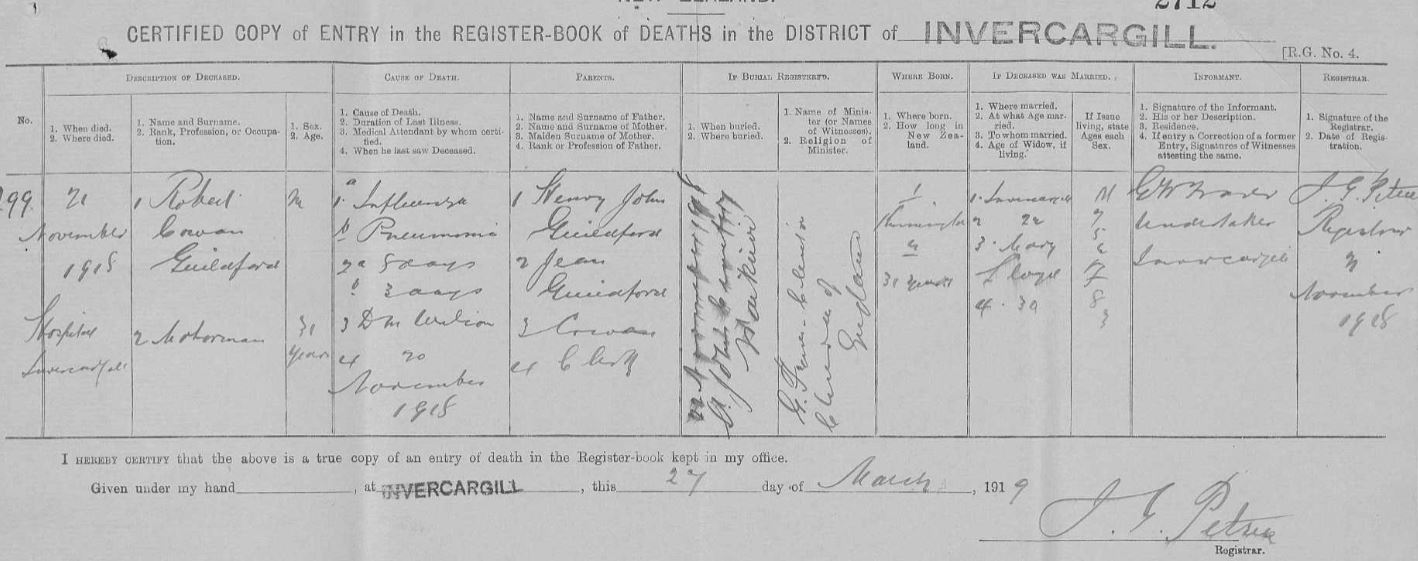 2712
CERTIFIED COPY of ENTRY in the REGISTER-BOOK of DEATHS in the DISTRICT of INVERCARGILL.
[R.G. No. 4.
No.
DESCRIPTION OF DECEASED.
1. When died.
2. Where died.
1. Name and Surname.
2. Rank, Profession, or Occupa-
tion.
1. Sex.
2. Age.
CAUSE OF DEATH.
1. Cause of Death.
2. Duration of Last Illness.
3. Medical Attendant by whom certi-
fied.
4. When he last saw Deceased.
PARENTS.
1. Name and Surname of Father.
2. Name and Surname of Mother.
3. Maiden Surname of Mother.
4. Rank or Profession of Father.
IF BURIAL REGISTERED.
1. When buried.
2. Where buried.
1. Name of Minis-
ter (or Names
of Witnesses).
2. Religion of
Minister.
WHERE BORN.
1. Where born.
2. How long in
New Zea-
land.
IF DECEASED WAS MARRIED.
1. Where married.
2. At what Age mar-
ried.
3. To whom married.
4. Age of Widow, if
living.
If Issue
living, state
Ages each
Sex.
INFORMANT.
1. Signature of the Informant.
2. His or her Description.
3. Residence.
4. If entry a Correction of a former
Entry, Signatures of Witnesses
attesting the same.
REGISTRAR.
1. Signature of the
Registrar.
2. Date of Regis-
tration.
199
21
November
1918
Hospital
Invercargill
1 Robert
Cowan
Guildford
2 Motorman
M
31
Years
a
1 Influenza
b Pneumonia
2 a 8 days
b 3 days
3 Dr Wilson
4 20
November
1918
1 Henry John
Guildford
2 Jean
Guildford
3 Cowan
4 Clerk
Church of
England
1
31 years
1 Invercargill
2 22
3 Mary
Lloyd
4 30
M
7
5
F
8
3
Undertaker
Invercargill
J. G. Petrie
Registrar
November
1918
I HEREBY CERTIFY that the above is a true copy of an entry of death in the Register-book kept in my office.
Given under my hand , at INVERCARGILL , this 27 day of March , 1919
J. G. Petrie
Registrar.